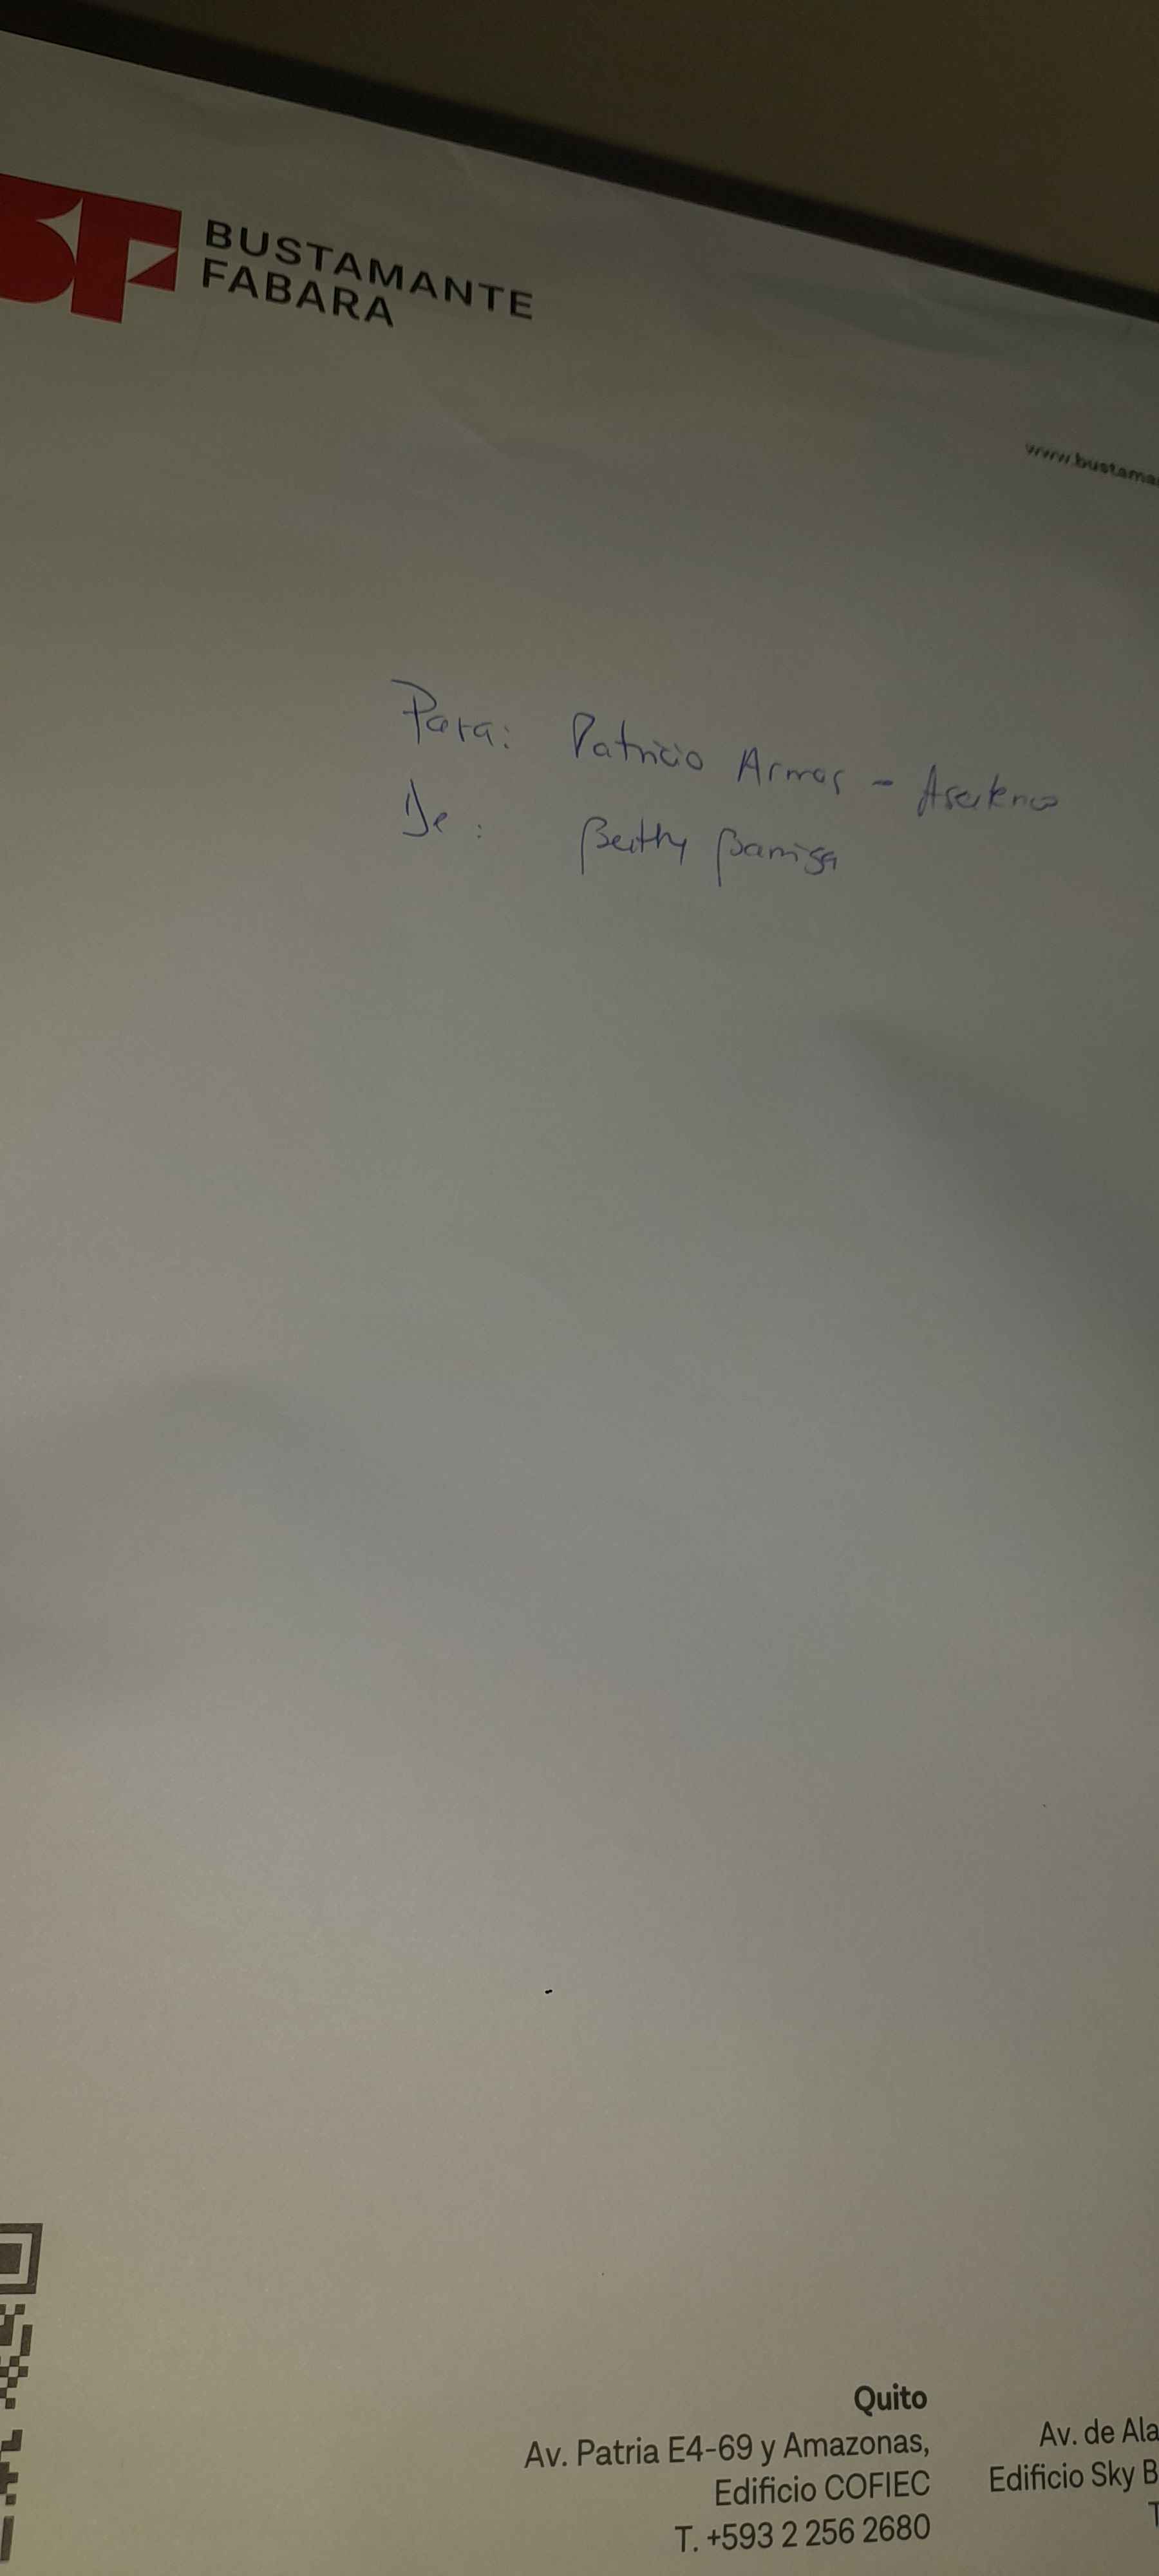 BUSTAMANTE
FABARA
www.bustama
Para: Patricio Armas -
De: Betthy Barriga
Quito
Av. Patria E4-69 y Amazonas,
Edificio COFIEC
T. +593 2 256 2680
Av. de Ala
Edificio Sky B
T